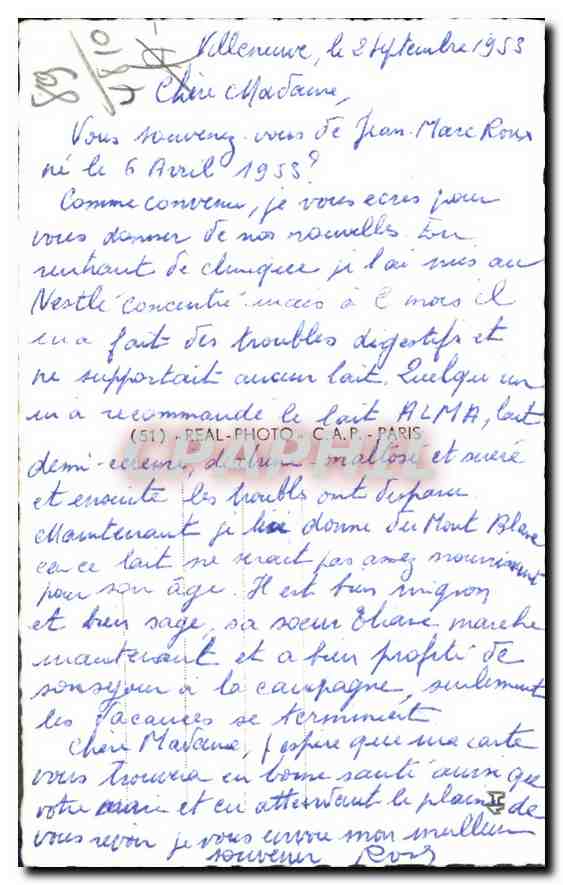 809
4810
Villeneuve, le 2 Septembre 1953
Chère Madame,
Vous souvenez-vous de Jean-Marc Roux
né le 6 Avril 1953?
Comme convenu, je vous ecris pour
vous donner de nos nouvelles. En
rentrant de clinique je l'ai mis au
Nestlé concentré mais à 2 mois il
m'a fait des troubles digestifs et
ne supportait aucun lait. Quelqu'un
m'a recommandé le lait ALMA, lait
(51) - REAL-PHOTO - C.A.P. - PARIS
demi-écrémé, maltosé et sucré
et ensuite les troubles ont disparu.
Maintenant je lui donne du Mont Blanc
car ce lait ne serait pas assez nourrissant
pour son âge. Il est bien mignon
et bien sage, sa soeur Eliane marche
maintenant et a bien profité de
son séjour à la campagne, seulement
les vacances se terminent
Chère Madame, j'espère que ma carte
vous trouvera en bonne santé ainsi que
votre et en attendant le plaisir de
vous revoir je vous envoie mon meilleur
souvenir Roux